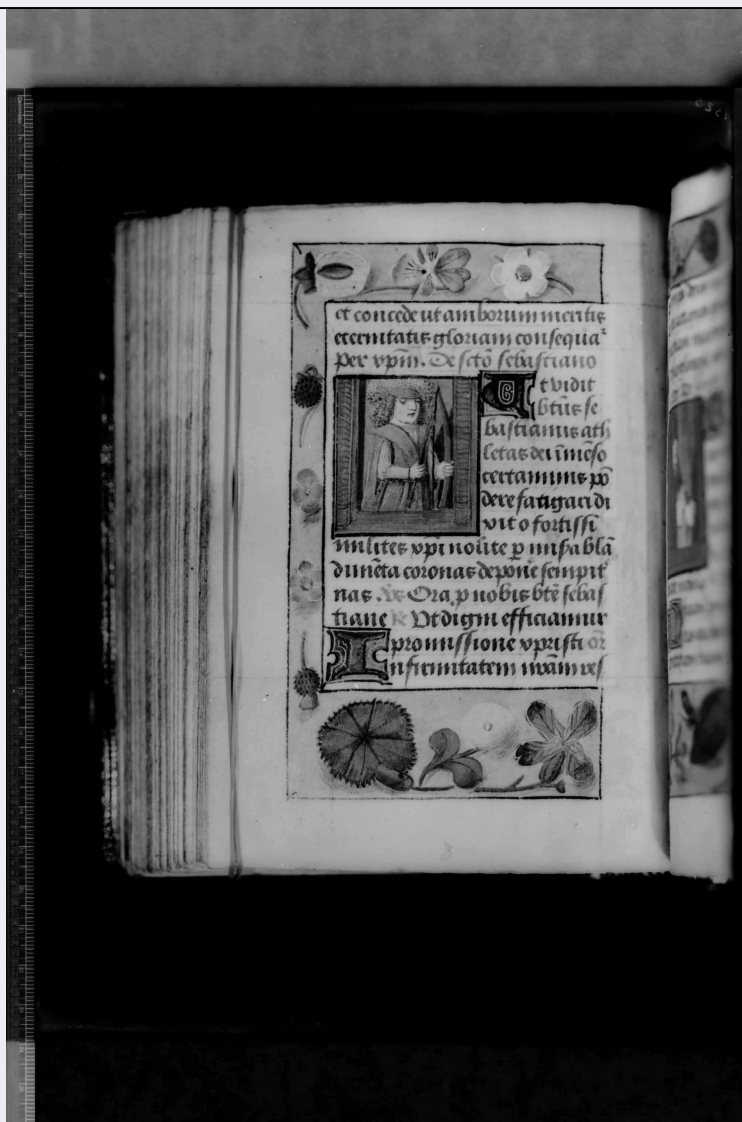 et concede ut amborum meritis
eternitatis gloriam consequaʳ
per xp̄m. De sc̄to sebastiano
Et vidit
bt̄us se
bastianus ath
letas dei īmeso
certaminis pō
dere fatigari di
xit o fortissī
milites xp̄i nolite p̄ misa blā
dimēta coronas depone sempit̓
nas Vs Ora p̄ nobis btē sebas
tiane R Vt digni efficiamur
promissione xpristi or̄
Infirmitatem nr̄am res